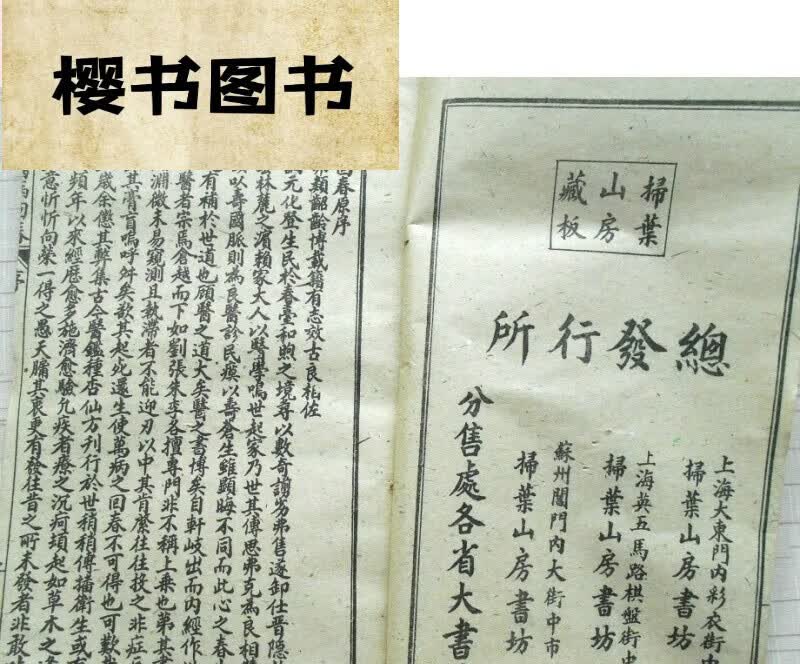 樱书图书
掃葉
山房
藏板
總發行所
上海大東門內彩衣街
掃葉山房書坊
上海英五馬路棋盤街中
掃葉山房書坊
蘇州閶門內大街中市
掃葉山房書坊
分售處各省大書
回春原序
類齠齡博載籍有志效古良私佐
元化登生民於春臺和煦之境尋以數奇謭劣弗售遂卸仕晉隱
林麓之濱賴家大人以醫學鳴世起家乃世其傳思弗克為良相
以壽國脈則為良醫診民瘼以壽蒼生雖顯晦不同而此心之春
有補於世道也顧醫之道大矣醫之書博矣自軒岐出而內經作
醫者宗焉倉越而下如劉張朱李各擅專門非不稱上乘也弟其書
淵微未易窺測且執滯者不能迎刃以中其肯綮往往投之非症
其膏肓嗚呼舛矣欲其起死還生使萬病之回春不可得也可歎
歲余憊其弊集古今醫鑑種杏仙方刊行於世稍稍傳播衛生或
頻年以來經歷愈多施濟愈驗凡疾者療之沉疴頓起如草木之
意忻忻向榮一得之愚天牖其衷更有發往昔之所未發者非敢
回春 序